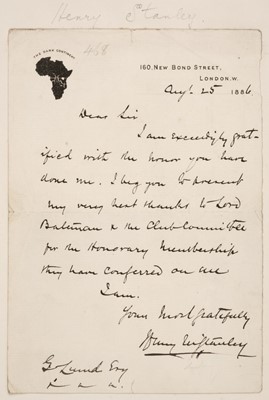 Henry Stanley
THE DARK CONTINENT
468
160, NEW BOND STREET,
LONDON. W.
Augt. 25 1886
Dear Sir
I am exceedingly grat-
ified with the honor you have
done me. I beg you to present
my very best thanks to Lord
Bateman & the Club Committee
for the Honorary Membership
they have conferred on me
I am.
Yours Most gratefully
Henry M Stanley
G. Lund Esq